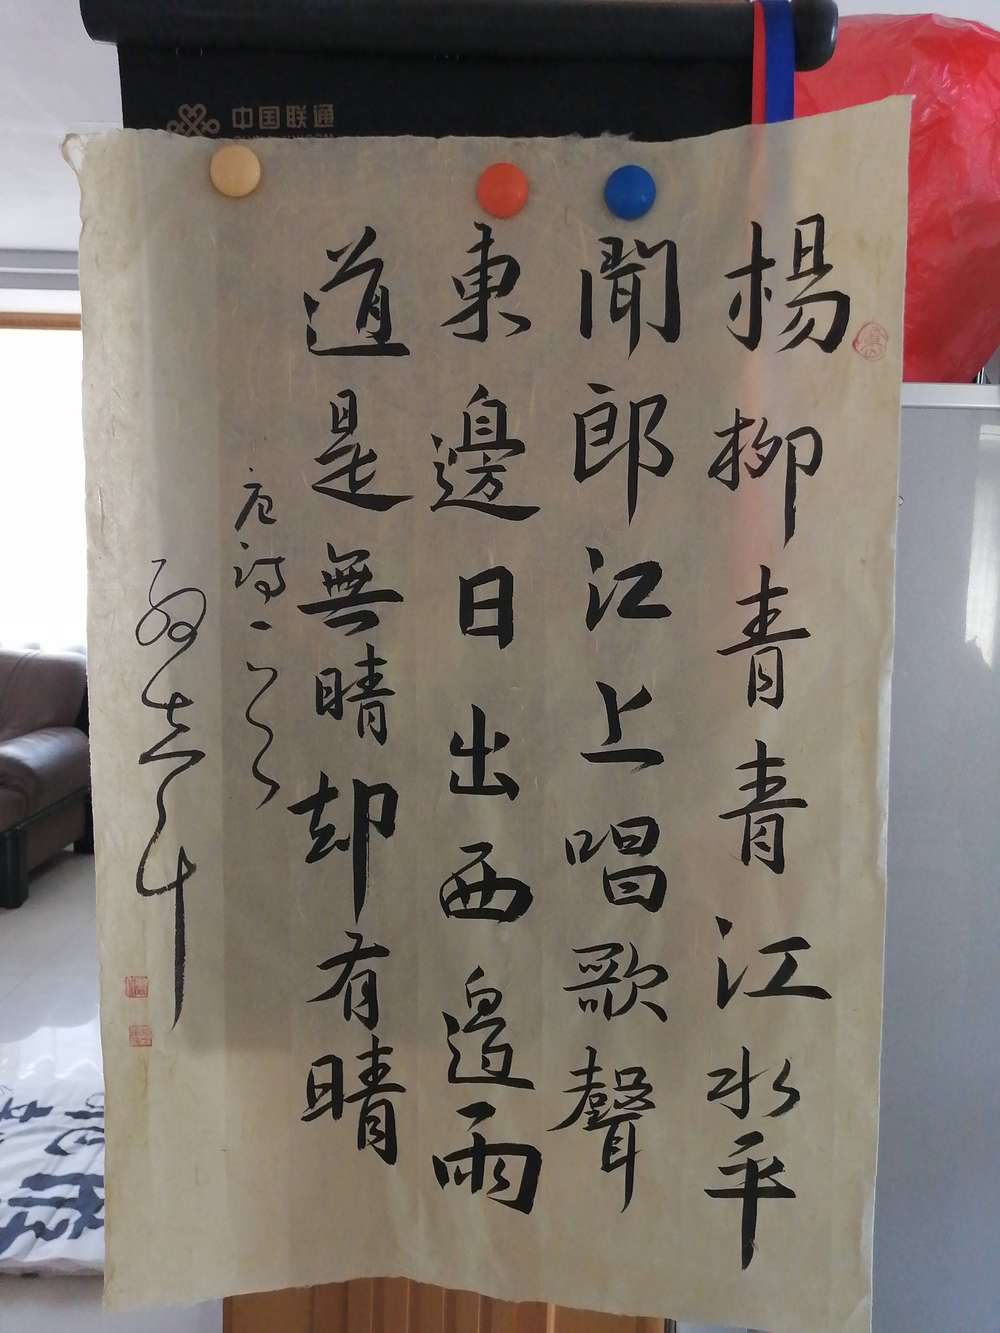 中国联通
楊柳青青江水平
聞郎江上唱歌聲
東邊日出西邊雨
道是無晴却有晴
唐詩一首